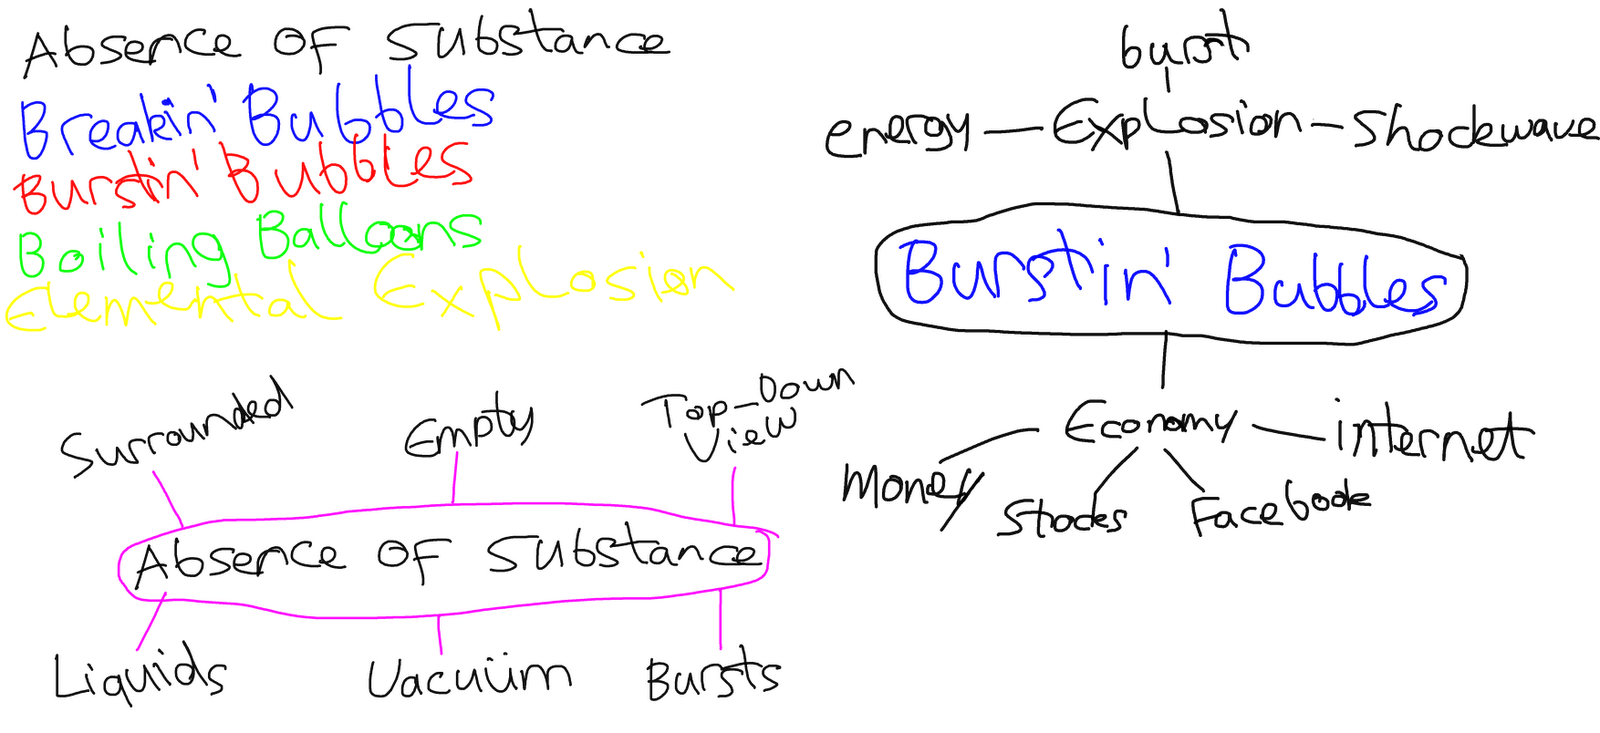 Absence OF Substance
Breakin' Bubbles
Burstin' Bubbles
Boiling Balloons
Elemental Explosion
burst
energy — Explosion — Shockwave
Burstin' Bubbles
Economy
internet
Money
Stocks
Facebook
Surrounded
Empty
Top-Down
View
Absence OF Substance
Liquids
Vacuüm
Bursts